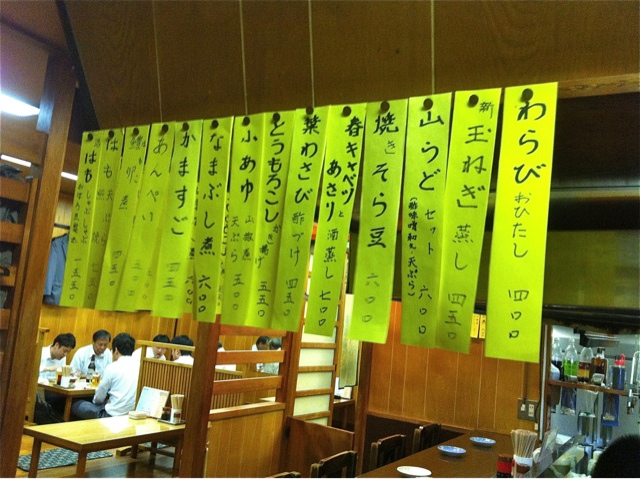 わらび おひたし 四〇〇
新玉ねぎ 蒸し 四五〇
山うど セット 六〇〇
(酢味噌和え・天ぷら)
焼き そら豆 六〇〇
春キャベツと
あさり 酒蒸し 七〇〇
葉わさび 酢づけ 四五〇
とうもろこし かき揚げ 五五〇
小あゆ 天ぷら 五〇〇
山椒煮
なまぶし 煮 六〇〇
かますご
あんぺい 四五〇
煮
はも 天ぷら
はも しゃぶしゃぶ 一五五〇